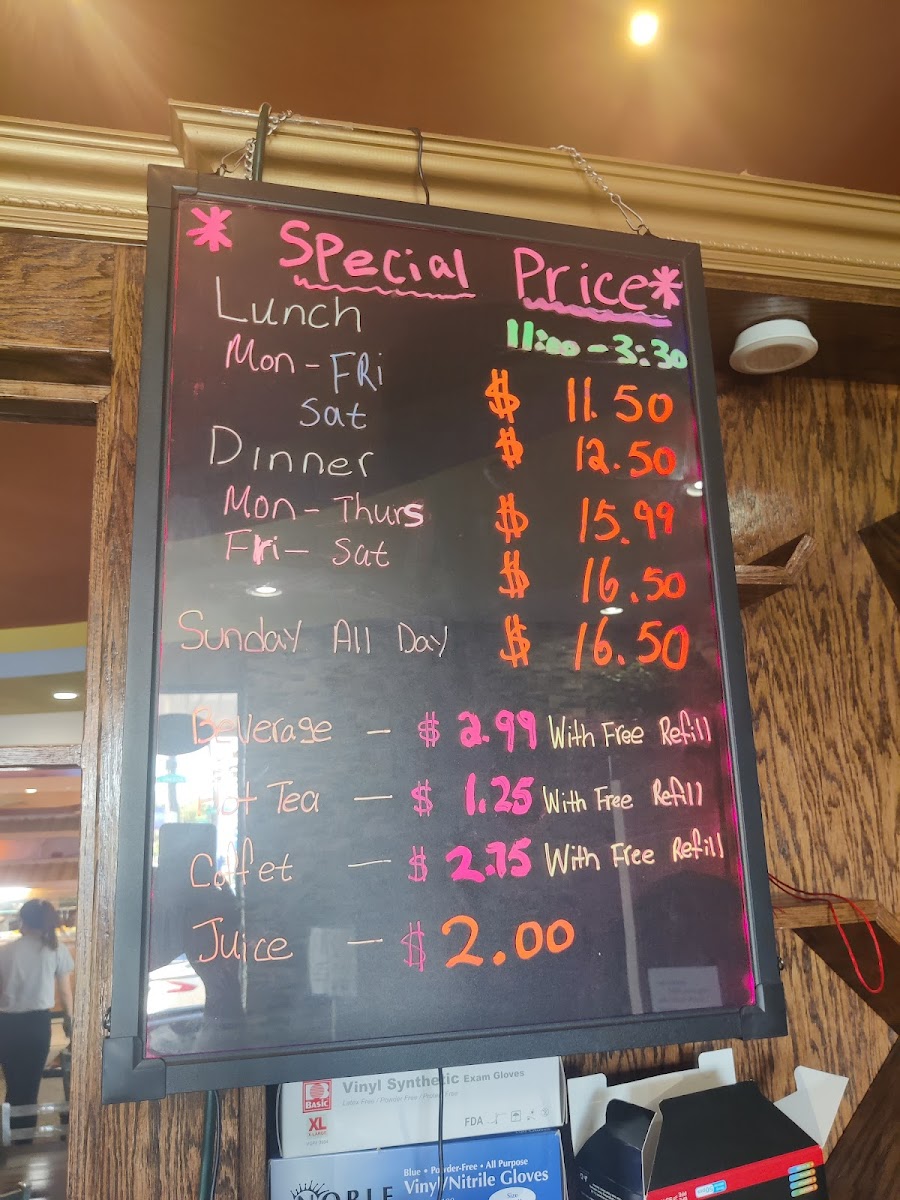 * Special Price *
Lunch 11:00 - 3:30
Mon - FRi $ 11.50
Sat $ 12.50
Dinner
Mon - Thurs $ 15.99
Fri - Sat $ 16.50
Sunday All Day $ 16.50
Beverage - $ 2.99 With Free Refill
Hot Tea - $ 1.25 With Free Refill
Coffet - $ 2.75 With Free Refill
Juice - $ 2.00
Vinyl Synthetic Exam Gloves
Latex Free / Powder Free /
BASIC
XL
FDA
Blue • Powder-Free • All Purpose
Vinyl/Nitrile Gloves